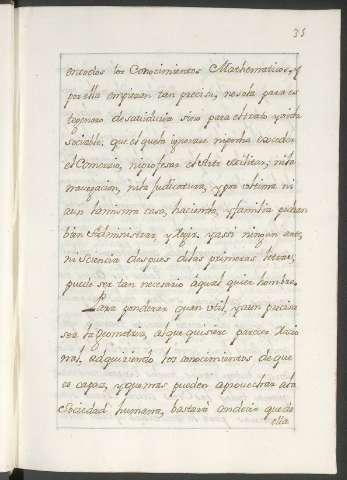 35
entodos los Conocimientos Mathematicos, y
por ella empiezan tan precisa, no solo para es
te genero de sabiduria sino para el trato, y vida
sociable, que el que la ignorare ni podra exceder
el Comercio, ni profesar el Arte Militar, ni la
navegacion, ni la Judicatura, y por ultimo ni
aun la misma casa, hacienda, y familia podran
bien Administrar, y Regir, y assi ningun arte,
ni Sciencia despues de las primeras letras,
puede ser tan necesario a qual quier hombre.
Para ponderar quan util, y aun precisa
sea la geometria, al que quisiere parecer Racio
nal, adquiriendo los conocimientos de que
es capaz, y que mas pueden aprovechar a la
Sociedad humana, bastará con decir que de
ella